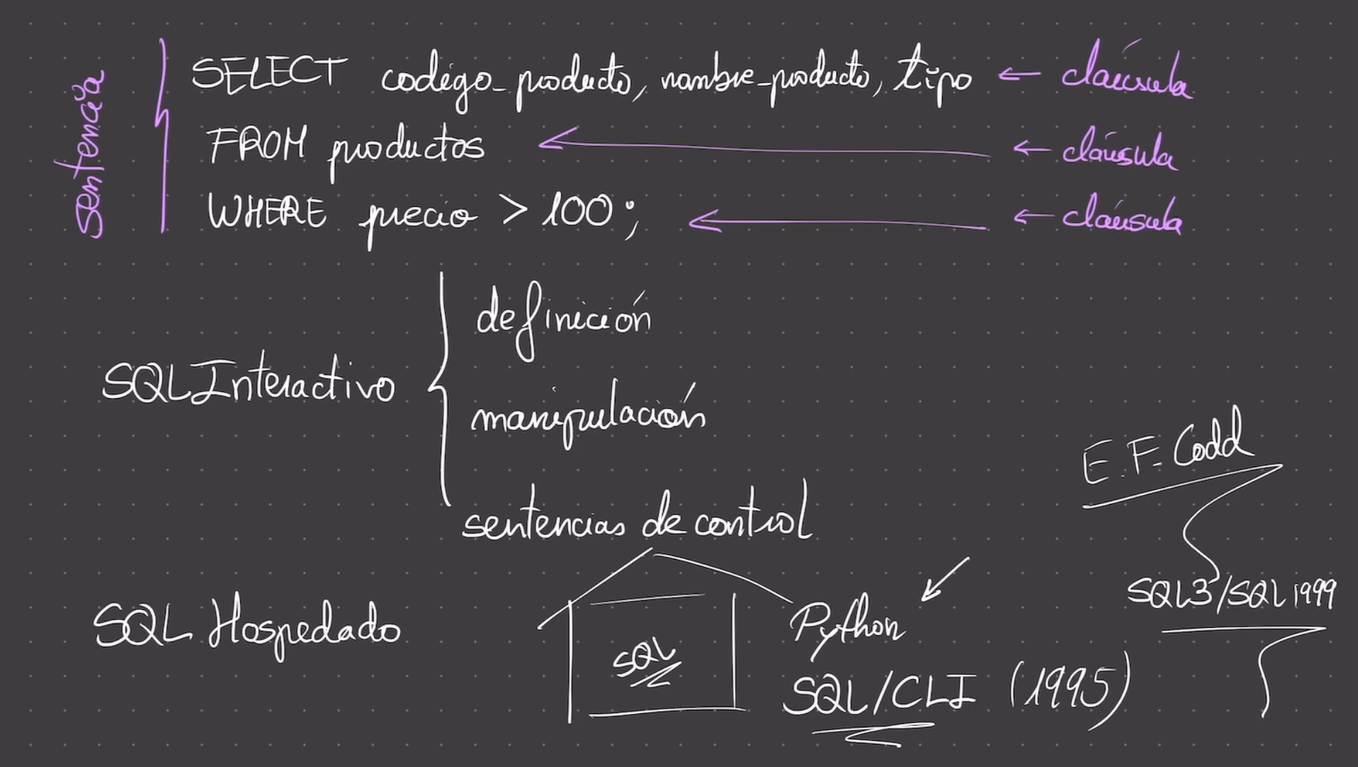 sentencia
SELECT codigo_producto, nombre_producto, tipo ← cláusula
FROM productos ← cláusula
WHERE precio > 100; ← cláusula
SQL Interactivo
definición
manipulación
sentencias de control
E. F. Codd
SQL3/SQL1999
SQL Hospedado
SQL
Python
SQL/CLI (1995)